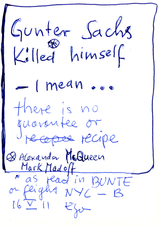 Gunter Sachs
Killed himself
— I mean ...
there is no
guarantee or
recipe
Alexander McQueen
Mark Madoff
* as read in BUNTE
on flight NYC – B
16 V 11